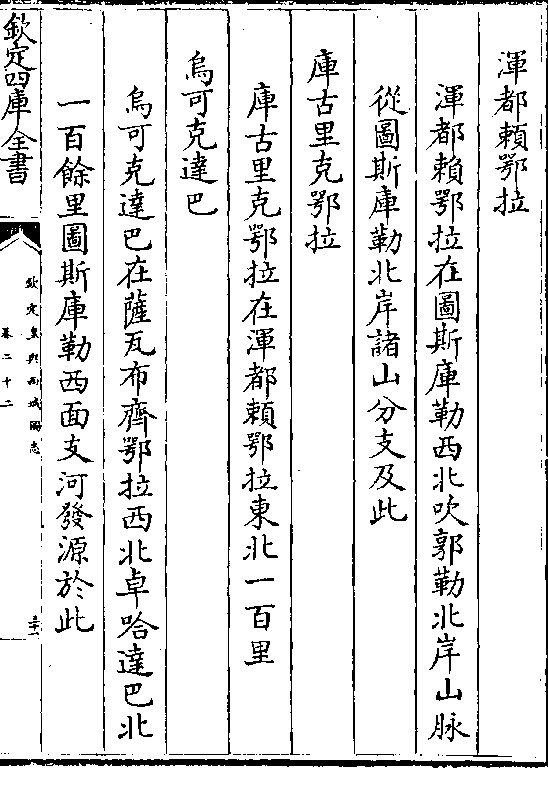 渾都賴鄂拉
渾都賴鄂拉在圖斯庫勒西北吹郭勒北岸山脉
從圖斯庫勒北岸諸山分支及此
庫古里克鄂拉
庫古里克鄂拉在渾都賴鄂拉東北一百里
烏可克達巴
烏可克達巴在薩瓦布齊鄂拉西北卓哈達巴北
一百餘里圖斯庫勒西面支河發源於此
欽定四庫全書
欽定皇輿西域圖志
卷二十二